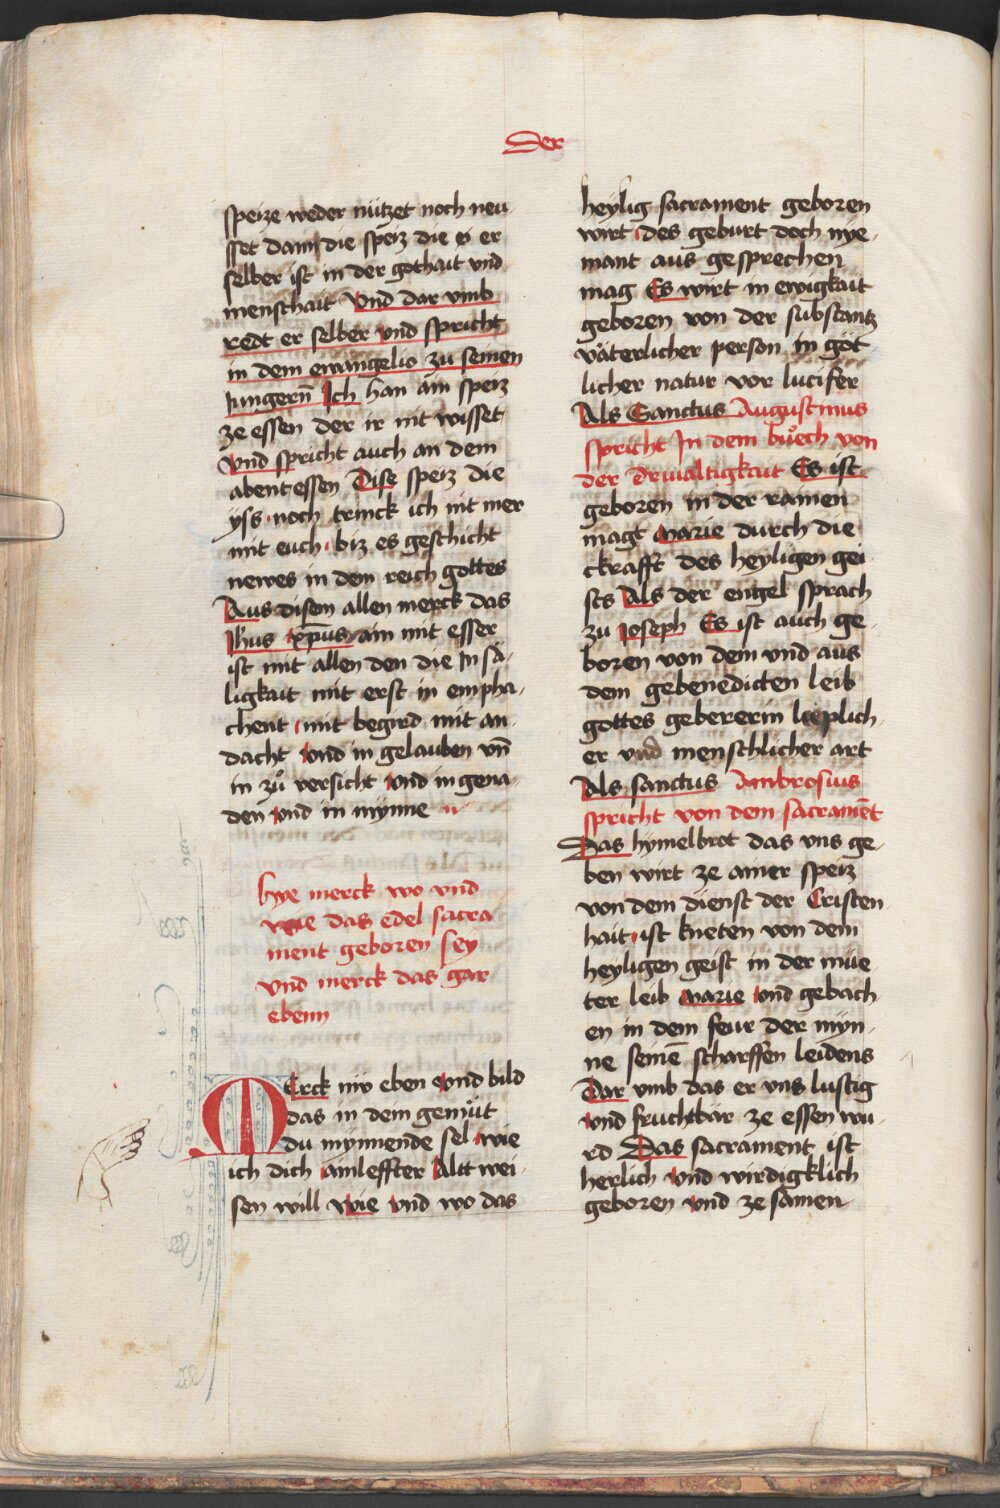 Der
speize weder nützet noch neu
sset dann die speiz die er
selber ist in der gothait vnd
menschait Vnd dar vmb
redt er selber vnd spricht
in dem ewangelio zu seinen
Jungern̄ Ich han ain speiz
ze essen der ir nit wisset
Vnd spricht auch an dem
abentessen Dise speiz die
yss noch trinck ich nit mer
mit euch biz es geschicht
newes in dem reich gottes
Aus disen allen merck das
Jh̄us xp̄us ain mit esser
ist mit allen den die In sä-
ligkait mit erst in empha-
chent mit begird mit an-
dacht vnd in gelauben vn̄
in zuͦ versicht vnd in gena-
den vnd in mynne
hye merck wo vnd
wie das edel sacra
ment geboren sey
vnd merck das gar
ebenn
MErck mir eben vnd bild
das in dein gemüt
du mynnende sel wie
ich dich ainleffter Altt wei-
sen will wie vnd wo das
heylig sacrament geboren
wirt des geburt doch nye-
mant aus gesprechen
mag Es wirt in ewigkait
geboren von der substantz
väterlicher person in göt
licher natur vor lucifer
Als Sanctus Augustinus
spricht In dem buͦech von
der driualtigkait Es ist
geboren in der rainen
magt marie durch die
ckrafft des heyligen gei
sts Als der engel sprach
zu Joseph Es ist auch ge-
boren von dem vnd aus
dem gebenedicten leib
gottes gebererin lieplich-
er vnd menschlicher art
Als sanctus Ambrosius
spricht von dem sacramēt
Das hymelbrot das vns ge-
ben wirt ze ainer speiz
von dem dienst der Cristen
hait ist kneten von dem
heyligen geist in der müe
ter leib marie vnd gebach-
en in dem feur der myn-
ne seinē scharffen leidens
Dar vmb das er vns lustig
vnd fruchtbär ze essen wu-
rd Das sacrament ist
herlich vnd wirdigklich
geboren vnd ze samen